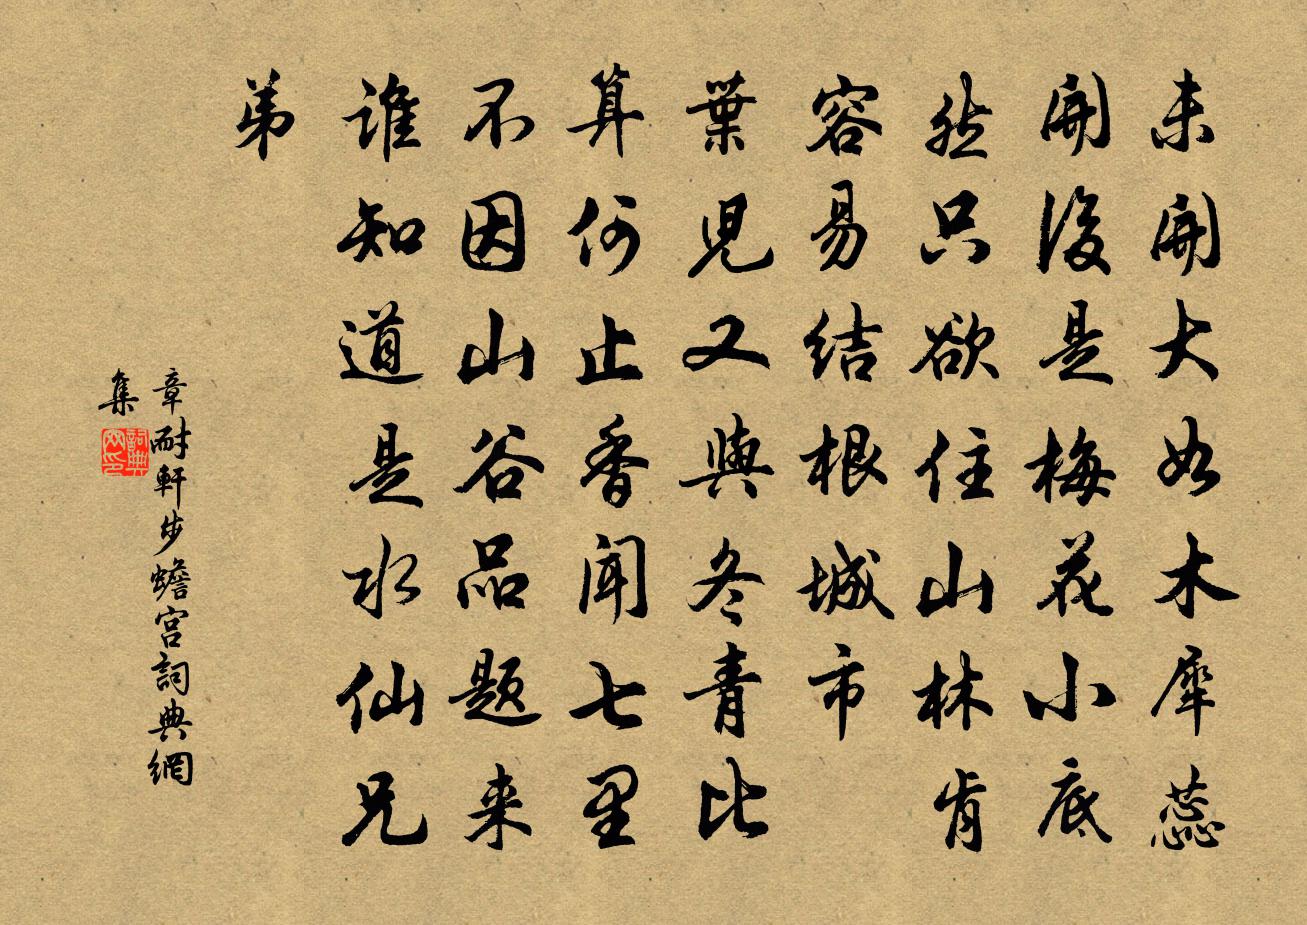 未開大如木犀蕊
開後是梅花小底
然只欲住山林肯
容易結根城市
葉兒又與冬青比
算何止香聞七里
不因山谷品題来
誰知道是水仙兄
弟
章耐軒步蟾宮詞典網
集
詞典網印